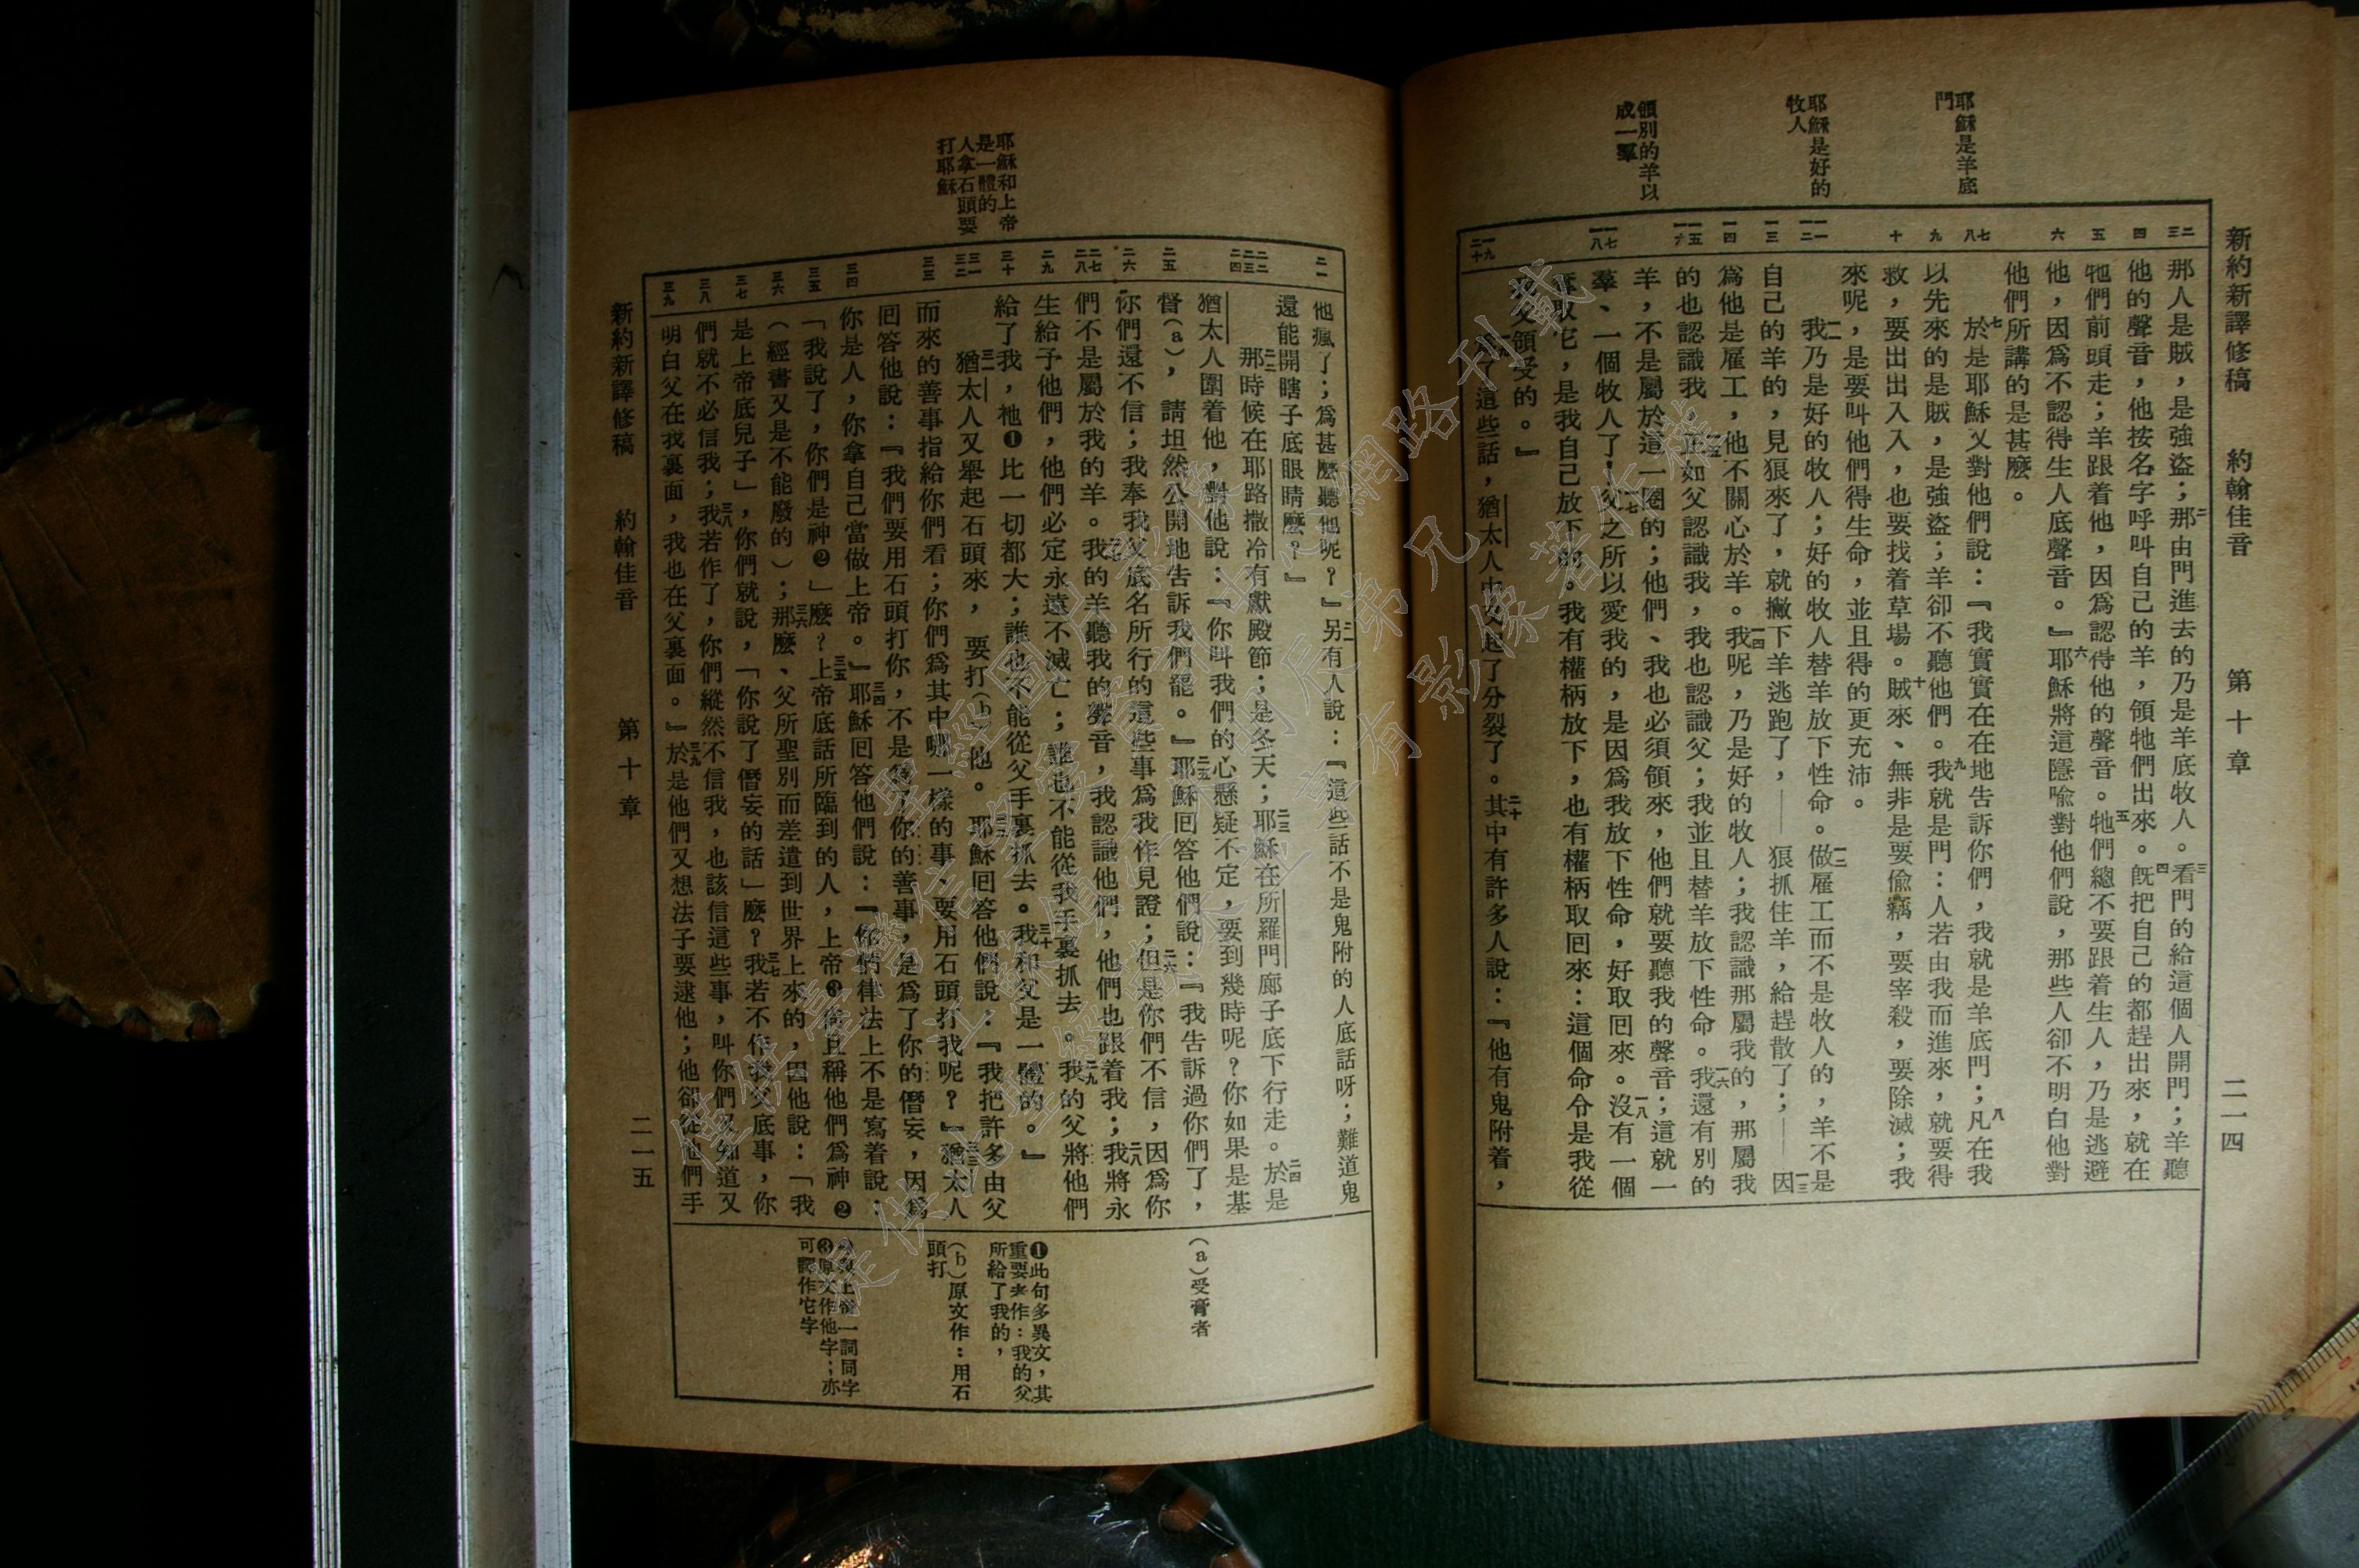 新約新譯修稿　約翰佳音　第十章　二一四
耶穌是羊底
門
耶穌是好的
牧人
領別的羊以
成一羣
那人是賊，是強盜；二那由門進去的乃是羊底牧人。三看門的給這個人開門；羊聽
他的聲音，他按名字呼叫自己的羊，領牠們出來。四旣把自己的都趕出來，就在
牠們前頭走；羊跟着他，因爲認得他的聲音。五牠們總不要跟着生人，乃是逃避
他，因爲不認得生人底聲音。』六耶穌將這隱喻對他們說，那些人卻不明白他對
他們所講的是甚麼。
七於是耶穌又對他們說：『我實實在在地告訴你們，我就是羊底門；八凡在我
以先來的是賊，是強盜；羊卻不聽他們。九我就是門：人若由我而進來，就要得
救，要出出入入，也要找着草場。十賊來、無非是要偷竊，要宰殺，要除滅；我
來呢，是要叫他們得生命，並且得的更充沛。
一一我乃是好的牧人；好的牧人替羊放下性命。一二做雇工而不是牧人的，羊不是
自己的羊的，見狼來了，就撇下羊逃跑了，——狼抓住羊，給趕散了；——一三因
爲他是雇工，他不關心於羊。一四我呢，乃是好的牧人；我認識那屬我的，那屬我
的也認識我，一五正如父認識我，我也認識父；我並且替羊放下性命。一六我還有別的
羊，不是屬於這一圈的；他們、我也必須領來，他們就要聽我的聲音；這就一
羣、一個牧人了；一七父之所以愛我的，是因爲我放下性命，好取回來。一八沒有一個
奪取它，是我自己放下的。我有權柄放下，也有權柄取回來：這個命令是我從
父領受的。』
了這些話，猶太人中又起了分裂了。二十其中有許多人說：『他有鬼附着，
他瘋了；爲甚麼聽他呢？』二一另有人說：『這些話不是鬼附的人底話呀；難道鬼
還能開瞎子底眼睛麼？』
二二那時候在耶路撒冷有獻殿節；是冬天；二三耶穌在所羅門廊子底下行走。二四於是
猶太人圍着他，對他說：『你叫我們的心懸疑不定，要到幾時呢？你如果是基
督（a），請坦然公開地告訴我們罷。』二五耶穌回答他們說：『我告訴過你們了，
你們還不信；我奉我父底名所行的這些事爲我作見證；二六但是你們不信，因爲你
們不是屬於我的羊。二七我的羊聽我的聲音，我認識他們，他們也跟着我；二八我將永
生給予他們，他們必定永遠不滅亡；誰也不能從我手裏抓去。二九我的父將他們
給了我，祂❶比一切都大；誰也不能從父手裏抓去。三十我和父是一體的。』
三一猶太人又舉起石頭來，要打（b）他。三二耶穌回答他們說：『我把許多由父
而來的善事指給你們看；你們爲其中哪一樣的事、要用石頭打我呢？』三三猶太人
回答他說：『我們要用石頭打你，不是爲了你的善事，是爲了你的僭妄，因爲
你是人，你拿自己當做上帝。』三四耶穌回答他們說：『你們律法上不是寫着說：
「我說了，你們是神❷」麼？三五上帝底話所臨到的人，上帝❸尚且稱他們爲神❷
（經書又是不能廢的）；三六那麼、父所聖別而差遣到世界上來的，因他說：「我
是上帝底兒子」，你們就說，「你說了僭妄的話」麼？三七我若不作我父底事，你
們就不必信我；三八我若作了，你們縱然不信我，也該信這些事，叫你們又知道又
明白父在我裏面，我也在父裏面。』三九於是他們又想法子要逮他；他卻從他們手
耶穌和上帝
是一體的
人拿石頭要
打耶穌
（a）受膏者
❶此句多異文，其
重要者作：我的父
所給了我的，
（b）原文作：用石
頭打
一詞同字
❸原文作他字；亦
可譯作它字
新約新譯修稿　約翰佳音　第十章　二一五